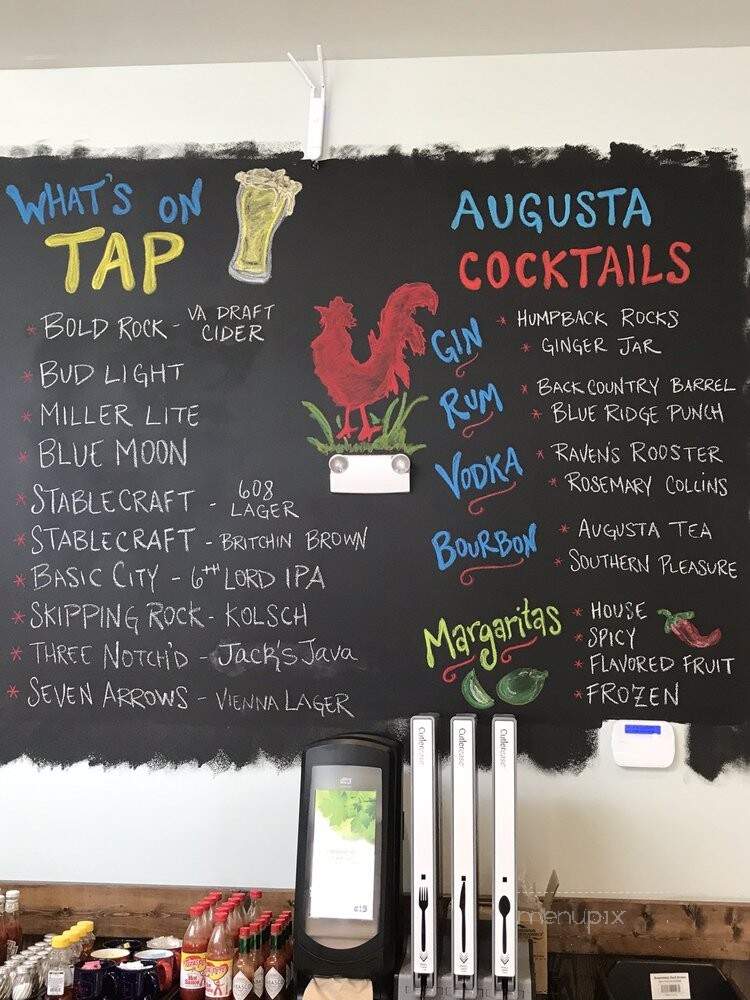 WHAT'S ON
TAP
* BOLD ROCK - VA DRAFT
CIDER
* BUD LIGHT
* MILLER LITE
* BLUE MOON
* STABLECRAFT - 608
LAGER
* STABLECRAFT - BRITCHIN BROWN
* BASIC CITY - 6TH LORD IPA
* SKIPPING ROCK - KOLSCH
* THREE NOTCH'D - Jack's Java
* SEVEN ARROWS - VIENNA LAGER
AUGUSTA
COCKTAILS
GIN
* HUMPBACK ROCKS
* GINGER JAR
RUM
* BACK COUNTRY BARREL
* BLUE RIDGE PUNCH
VODKA
* RAVEN'S ROOSTER
* ROSEMARY COLLINS
BOURBON
* AUGUSTA TEA
* SOUTHERN PLEASURE
Margaritas
* HOUSE
* SPICY
* FLAVORED FRUIT
* FROZEN
Cutlerease
Cutlerease
Cutlerease
menupix